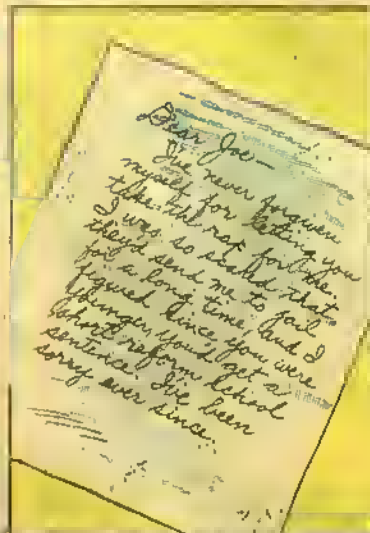 Dear Joe—
I've never forgiven
myself for letting you
take the rap for me.
I was so scared that
they'd send me to jail
for a long time, and I
figured since you were
younger, you'd get a
short reform school
sentence. I've been
sorry ever since.